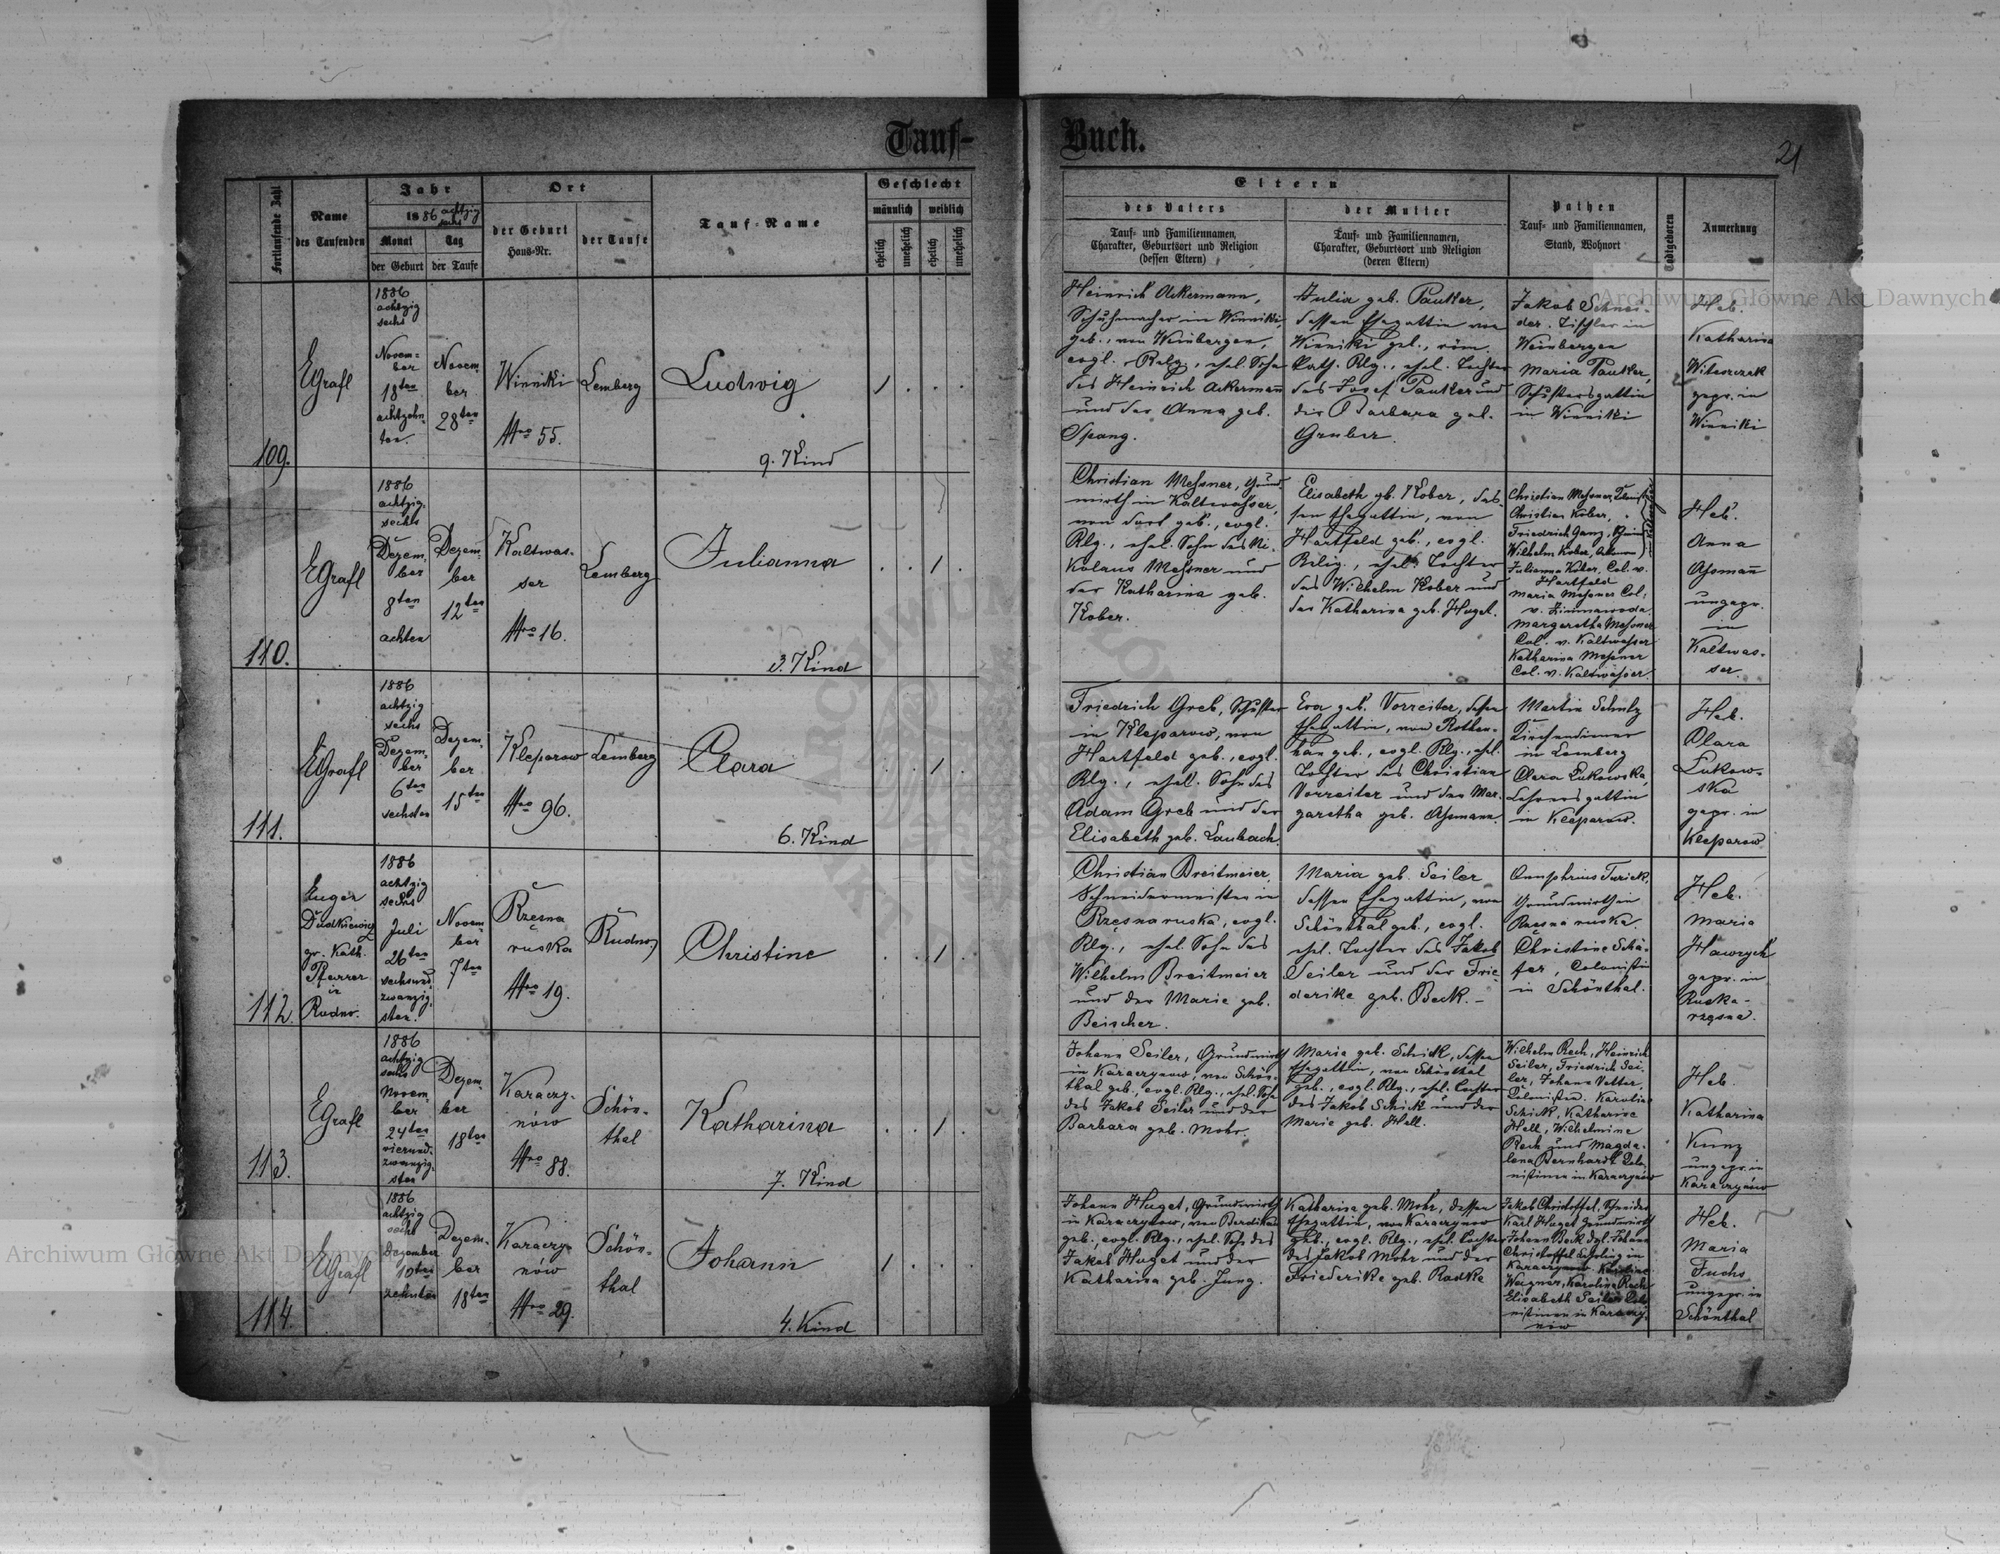 Tauf-
Buch.
21
Fortlaufende Zahl
Name
des Taufenden
Jahr
1886 achtzig
sechs
Monat
der Geburt
Tag
der Taufe
Ort
der Geburt
Haus-Nr.
der Taufe
Tauf-Name
Geschlecht
männlich
weiblich
ehelich
unehelich
ehelich
unehelich
Eltern
des Vaters
Tauf- und Familiennamen,
Charakter, Geburtsort und Religion
(dessen Eltern)
der Mutter
Tauf- und Familiennamen,
Charakter, Geburtsort und Religion
(deren Eltern)
Pathen
Tauf- und Familiennamen,
Stand, Wohnort
Todtgeboren
Anmerkung
109.
EGrafl
1886
achtzig
sechs
Novem-
ber
18ten
achtzehn-
ten.
Novem-
ber
28ten
Winniki
Nro 55.
Lemberg
Ludwig
9. Kind
1
Heinrich Ackermann,
Schuhmacher in Winniki,
geb. von Weinbergen,
evgl. Relg., ehel. Sohn
des Heinrich Ackermann
und der Anna geb.
Spang.
Julia geb. Pauker,
dessen Ehegattin von
Winniki geb., röm.
kath. Rlg., ehel. Tochter
des Josef Pauker und
der Barbara geb.
Gruber.
Jakob Schnei-
der. Tischler in
Weinbergen
Maria Pauker,
Schustersgattin
in Winniki
Heb.
Katharina
gepr. in
Winniki
110.
EGrafl
1886
achtzig
sechs
Dezem-
ber
8ten
achten
Dezem-
ber
12ten
Kaltwas-
ser
Nro 16.
Lemberg
Julianna
3. Kind
1
Christian Messner, Grund-
wirth in Kaltwasser,
von dort geb., evgl.
Rlg., ehel. Sohn des Ni-
kolaus Messner und
der Katharina geb.
Kober.
Elisabeth gb. Kober, des-
sen Ehegattin, von
Hartfeld geb., evgl.
Relig., ehel. Tochter
des Wilhelm Kober und
der Katharina geb. Hugel.
Christian Messner,
Christian Kober,
Friedrich Ganz,
Wilhelm Kober,
Julianna Kober, Col. v.
Hartfeld
Maria Messner Col.
v. Zimnawoda,
Margaretha Messner
Col. v. Kaltwasser
Katharina Messner
Col. v. Kaltwasser.
Heb.
Anna
Assmann
ungepr.
in
Kaltwas-
ser.
111.
EGrafl
1886
achtzig
sechs
Dezem-
ber
6ten
sechsten
Dezem-
ber
15ten
Kleparow
Nro 96.
Lemberg
Clara
6. Kind
1
Friedrich Greb, Schuster
in Kleparow, von
Hartfeld geb., evgl.
Rlg., ehel. Sohn des
Adam Greb und der
Elisabeth geb. Laubach.
Eva geb. Vorreiter, dessen
Ehegattin, von Rothen-
han geb., evgl. Rlg., ehel.
Tochter des Christian
Vorreiter und der Mar-
garetha geb. Assmann.
Martin Schulz
Kirchendiener
in Lemberg
Clara Lukowska,
Lehrersgattin
in Kleparow.
Heb.
Clara
Lukow-
ska
gepr. in
Kleparow
112.
Eugen
Dudkiewicz
gr. kath.
Pfarrer
in
Rudno.
1886
achtzig
sechs
Juli
26ten
sechsund-
zwanzig-
sten.
Novem-
ber
7ten
Rzęsna
ruska
Nro 19.
Rudno
Christine
1
Christian Breitmeier,
Schneidermeister in
Rzęsna ruska, evgl.
Rlg., ehel. Sohn des
Wilhelm Breitmeier
und der Marie geb.
Beischer.
Maria geb. Seiler
dessen Ehegattin, von
Schönthal geb., evgl.
ehel. Tochter des Jakob
Seiler und der Frie-
derike geb. Beck.
Onuphrius Turick,
Grundwirth in
Rzęsna ruska.
Christine Schä-
fer, Colonistin
in Schönthal.
Heb.
Maria
Hawrych
gepr. in
Ruska-
rzęsna.
113.
EGrafl
1886
achtzig
sechs
Novem-
ber
24ten
vierund-
zwanzig-
sten
Dezem-
ber
18ten
Karaczy-
nów
Nro 88.
Schön-
thal
Katharina
7. Kind
1
Johann Seiler, Grundwirth
in Karaczynow, von Schön-
thal geb., evgl. Rlg., ehel. Sohn
des Jakob Seiler und der
Barbara geb. Mohr.
Marie geb. Schick, dessen
Ehegattin, von Schönthal
geb., evgl. Rlg., ehel. Tochter
des Jakob Schick und der
Marie geb. Hell.
Wilhelm Rech, Heinrich
Seiler, Friedrich Sei-
ler, Johann Vetter,
Colonisten. Karoline
Schick, Katharine
Hell, Wilhelmine
Rech und Magda-
lena Bernhardt Colo-
nistinen in Karaczynów
Heb.
Katharina
Kunz
ungepr. in
Karaczynów
114.
EGrafl
1886
achtzig
sechs
Dezember
10ten
zehnten
Dezem-
ber
18ten
Karaczy-
nów
Nro 29.
Schön-
thal
Johann
4. Kind
1
Johann Huget, Grundwirth
in Karaczynow, von Berdikau
geb., evgl. Rlg., ehel. Sohn des
Jakob Huget und der
Katharina geb. Jung.
Katharina geb. Mohr, dessen
Ehegattin, von Karaczynow
geb., evgl. Rlg., ehel. Tochter
des Jakob Mohr und der
Friederike geb. Radke
Jakob Christoffel, Schneider
Karl Huget Grundwirth
Johann Beck dgl. Johann
Christoffel Lehrling in
Karaczynow. Christine
Wagner, Karoline Rech
Elisabeth Seiler Colo-
nistinen in Karaczy-
now
Heb.
Maria
Fuchs
ungepr. in
Schönthal
Archiwum Główne Akt Dawnych
Archiwum Główne Akt Dawnych